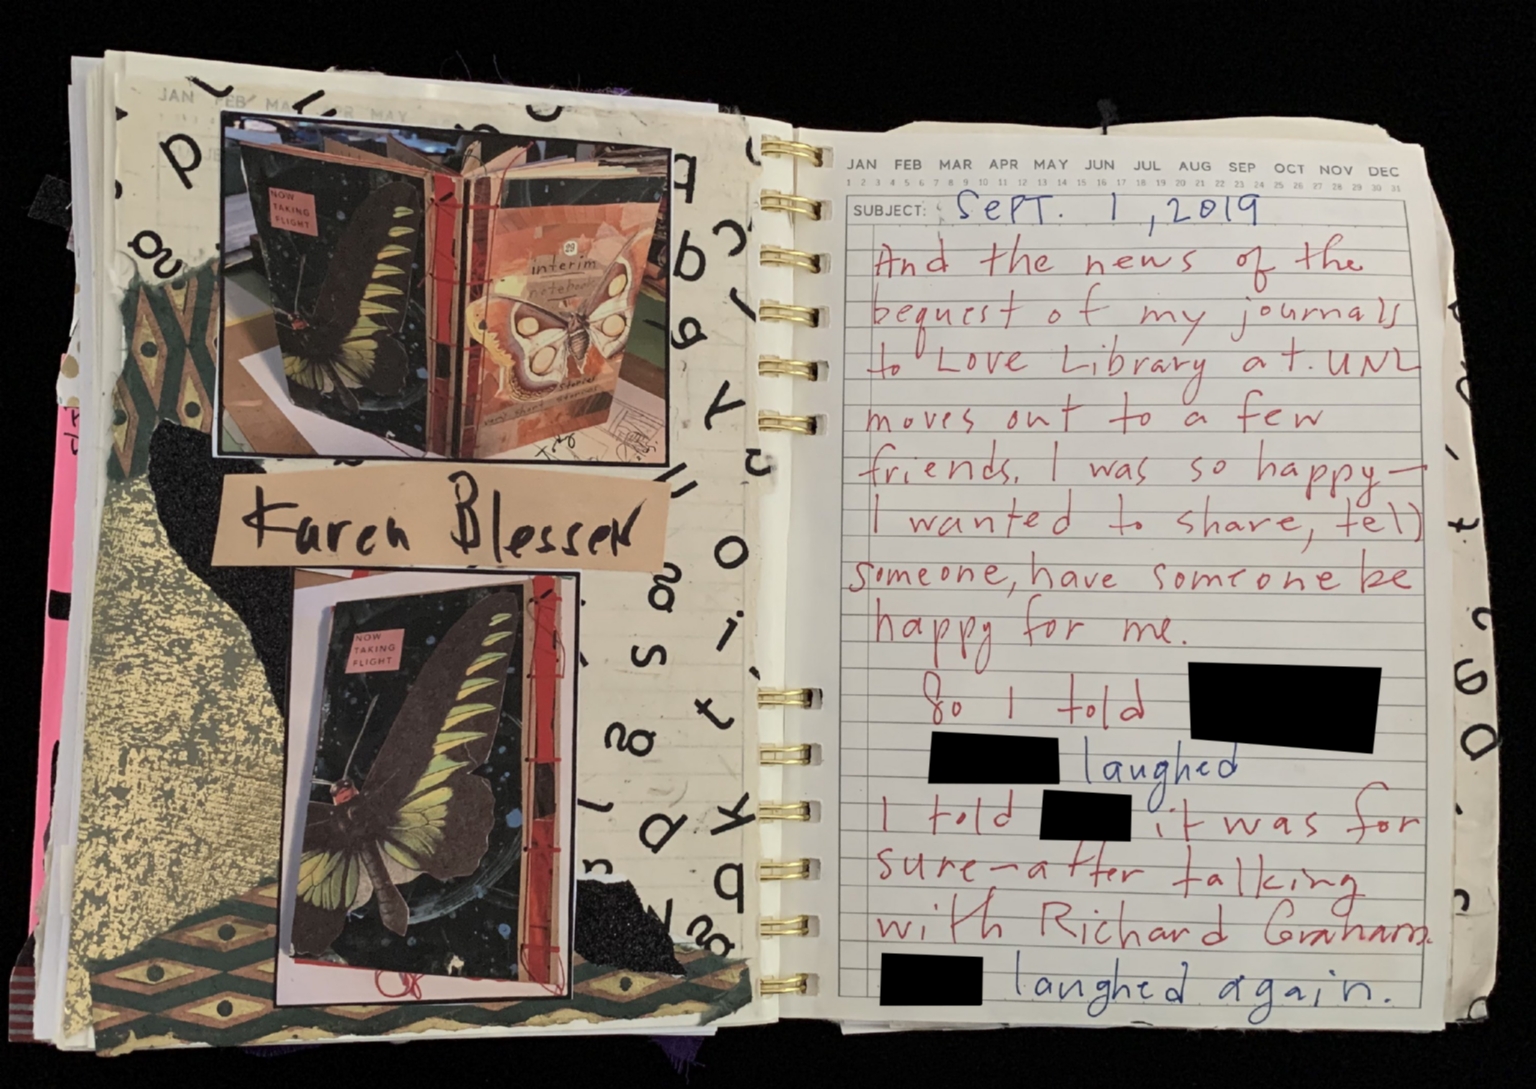 JAN FEB MAR APR MAY
NOW
TAKING
FLIGHT
29
interim
notebook
very short stories
Karen Blessen
NOW
TAKING
FLIGHT
JAN FEB MAR APR MAY JUN JUL AUG SEP OCT NOV DEC
1 2 3 4 5 6 7 8 9 10 11 12 13 14 15 16 17 18 19 20 21 22 23 24 25 26 27 28 29 30 31
SUBJECT: Sept. 1, 2019
And the news of the
bequest of my journals
to Love Library at UNL
moves out to a few
friends. I was so happy—
I wanted to share, tell
someone, have someone be
happy for me.
So I told
laughed
I told it was for
sure—after talking
with Richard Graham.
laughed again.